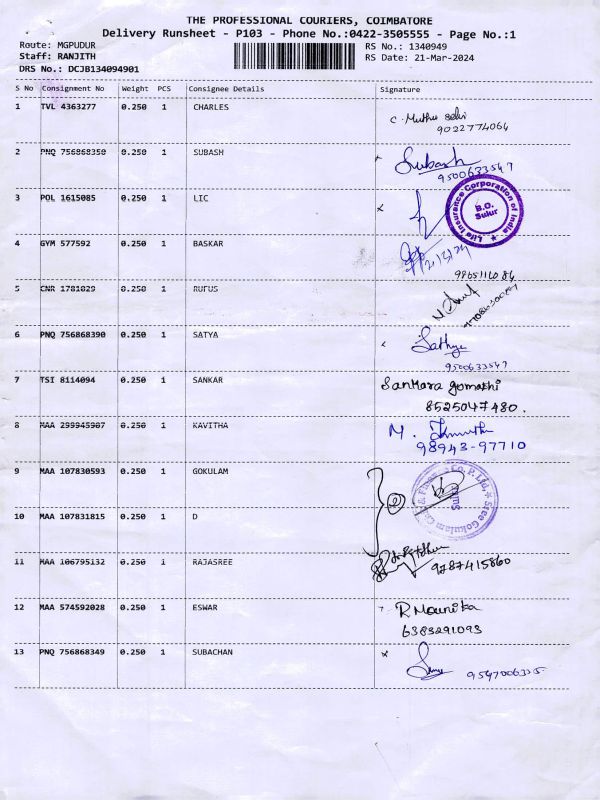 THE PROFESSIONAL COURIERS, COIMBATORE
Delivery Runsheet - P103 - Phone No.:0422-3505555 - Page No.:1
Route: MGPUDUR RS No.: 1340949
Staff: RANJITH RS Date: 21-Mar-2024
DRS No.: DCJB134094901
S No Consignment No Weight PCS Consignee Details Signature
1 TVL 4363277 0.250 1 CHARLES
C. Muthu selvi
9022774064
2 PNQ 756868350 0.250 1 SUBASH Subash
9500633547
3 POL 1615085 0.250 1 LIC
Life Insurance Corporation of India
B.O.
Sulur
4 GYM 577592 0.250 1 BASKAR
21/3/24
9865116086
5 CNR 1781029 0.250 1 RUFUS
6 PNQ 756868390 0.250 1 SATYA Sathya
9500633547
7 TSI 8114094 0.250 1 SANKAR Sankara gomathi
8525047480.
8 MAA 299945907 0.250 1 KAVITHA M.
98943-97710
9 MAA 107830593 0.250 1 GOKULAM
Sree Gokulam Chit & Co. P. Ltd.
Sulur
2
10 MAA 107831815 0.250 1 D
11 MAA 106795132 0.250 1 RAJASREE
9787415860
12 MAA 574592028 0.250 1 ESWAR R Mounika
6383291093
13 PNQ 756868349 0.250 1 SUBACHAN
9547006335